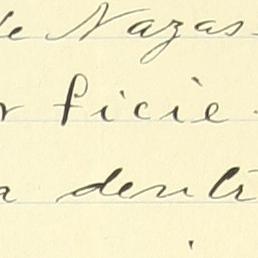 de Nazas-
r ficie-
a dentr